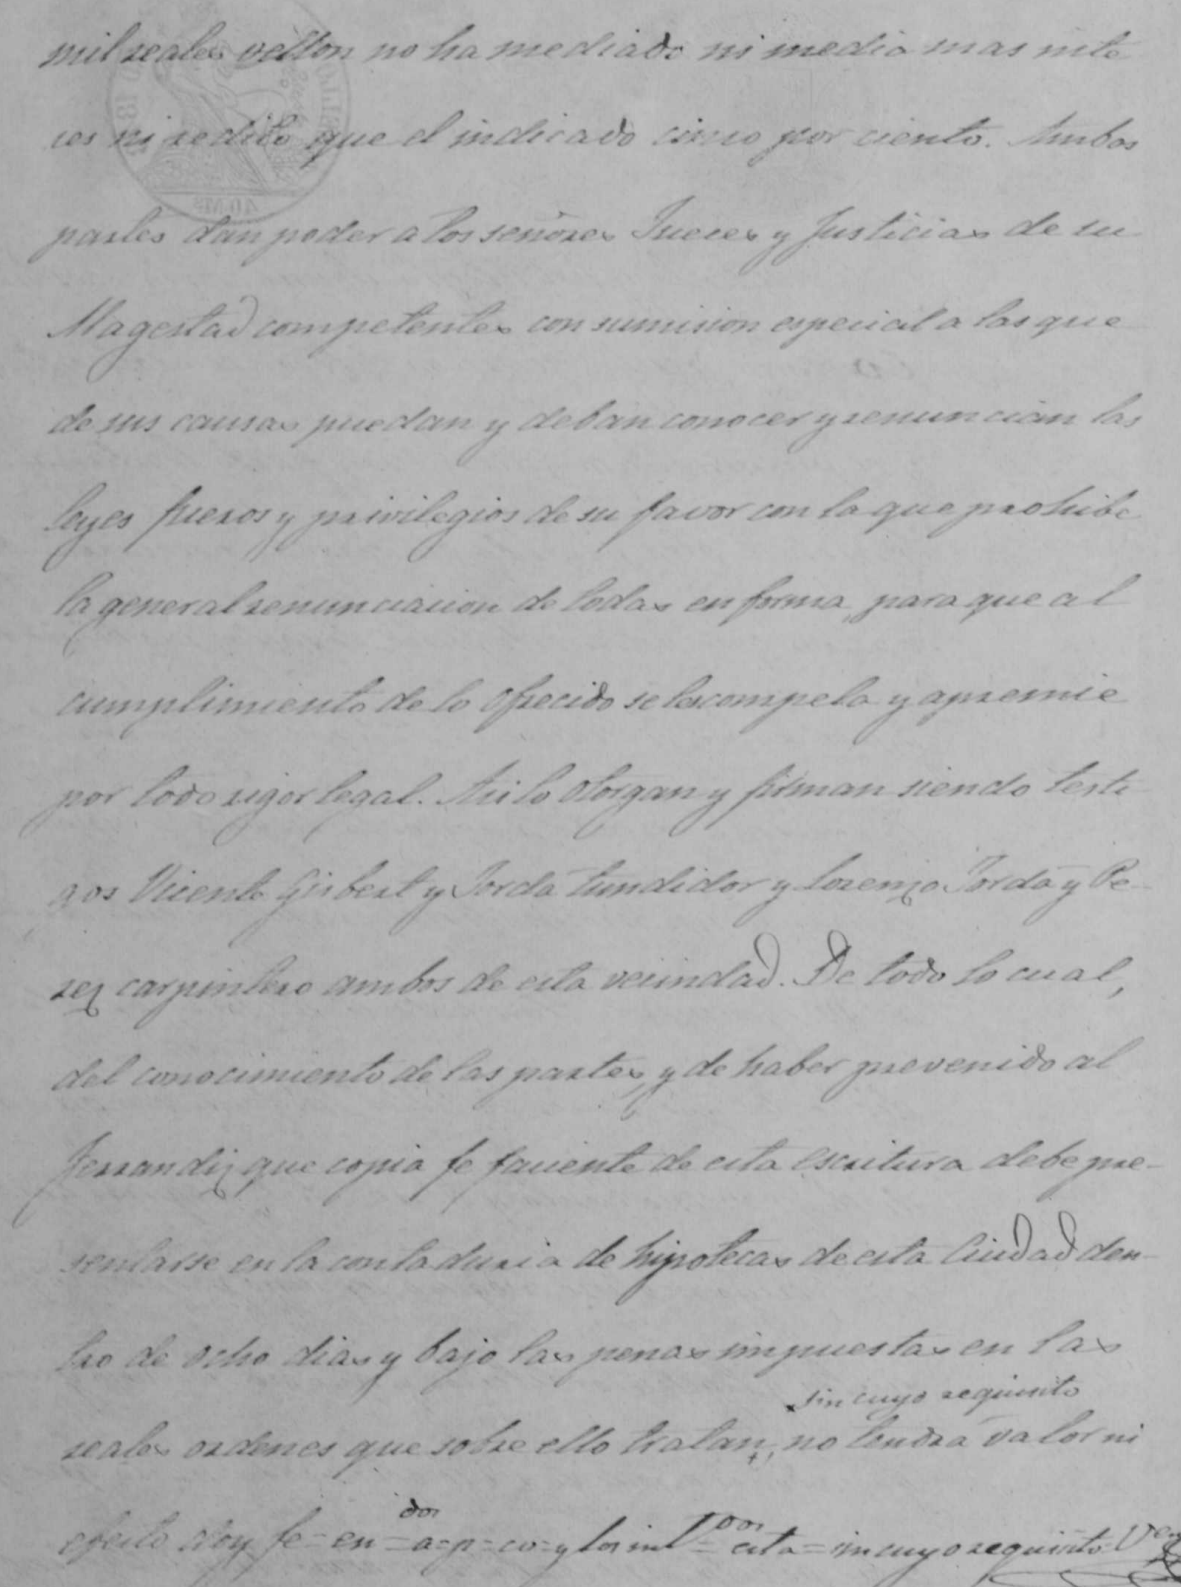 mil reales vellon no ha mediado ni media mas inte
res ni redito que el indicado cinco por ciento. Ambas
partes dan poder a los señores Jueces y Justicias de su
Magestad competentes con sumision especial a las que
de sus causas puedan y deban conocer y renuncian las
leyes fueros y privilegios de su favor con la que prohibe
la general renunciacion de todas en forma, para que al
cumplimiento de lo ofrecido se les compela y apremie
por todo rigor legal. Asi lo otorgan y firman siendo testi
gos Vicente Gisbert y Jordá tundidor y Lorenzo Jordá y Pe-
rez carpintero ambos de esta vecindad. De todo lo cual,
del conocimiento de las partes, y de haber prevenido al
Ferrandiz que copia fe faciente de esta escritura debe pre-
sentarse en la contaduria de hipotecas de esta Ciudad den-
tro de ocho dias y bajo las penas impuestas en las
sin cuyo requisito
reales ordenes que sobre ello tratan, no tendrá valor ni
dos
efecto doy fe = en = a = p = co = y los mil = esta = sin cuyo requisito =